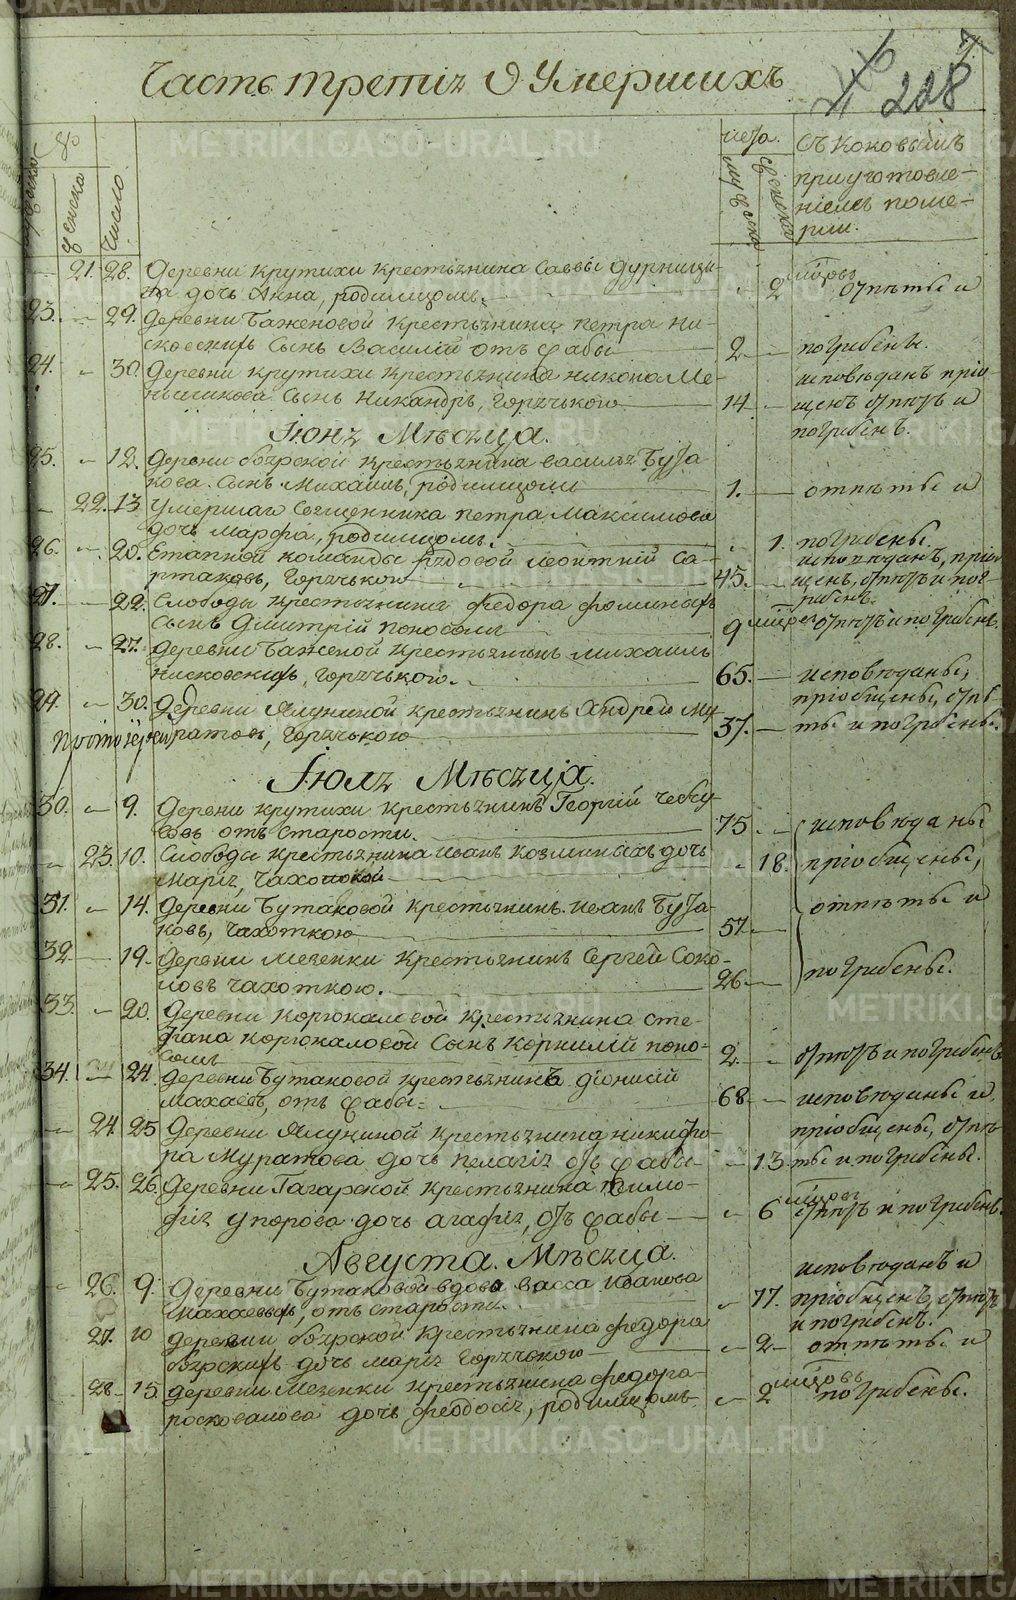 Часть третія О Умершихъ
228
мужеска
женска
Число
лѣта
мужеска
женска
Съ каковымъ
приуготовле-
ніемъ поме-
рли.
21. 28. Деревни Крутихи крестьянина Саввы Дурници-
на дочь Анна, родимцомъ. 2 отпѣты и
23. 29. Деревни Баженовой крестьянина Петра Ни-
сковскихъ Сынъ Василій отъ жабы 2 погребены.
24. 30. Деревни Крутихи крестьянина Никона Ме-
ньшикова Сынъ Никандръ, горячкою 14 исповѣданъ пріоб-
щенъ отпѣтъ и
погребенъ.
Іюня Мѣсяца.
25. 12. Деревни боярской крестьянина Василья Буза-
кова Сынъ Михаилъ, родимцомъ 1. отпѣты и
22. 13. Умершаго Священника Петра Максимова
дочь Марфа, родимцомъ. 1. погребены.
26. 20. Етапной команды рядовой Леонтій Са-
ртаковъ, горячкою 45. исповѣданъ, пріоб-
щенъ, отпѣтъ и пог-
ребенъ.
27. 22. Слободы крестьянина Федора Фоминыхъ
сынъ Дмитрій поносомъ 9 отпѣтъ и погребенъ.
28. 27. Деревни Баженой крестьянинъ Михаилъ
Нисковскихъ, горячкою. 65. исповѣданы,
29. 30. Деревни Ялуниной крестьянинъ Андрей Му-
ратовъ, горячкою 37. пріобщены, отпѣ-
ты и погребены.
Протоіерей
Іюля Мѣсяца.
30. 9. Деревни Крутихи крестьянинъ Георгій Чебу-
ковъ отъ старости. 75. исповѣданы
23. 10. Слободы крестьянина Иванъ Козминыхъ дочь
Марія, чахоткой 18. пріобщены,
31. 14. Деревни Бутаковой крестьянинъ Иванъ Буза-
ковъ, чахоткою 57. отпѣты и
32. 19. Деревни Мезенки крестьянинъ Сергей Соко-
ловъ чахоткою. 26. погребены.
33. 20. Деревни Корюкаловой крестьянина Сте-
фана Корюкаловой Сынъ Корнилій поно-
сомъ 2. отпѣтъ и погребенъ
34. 24. Деревни Бутаковой крестьянинъ Діонисій
Махаевъ, отъ жабы. 68. исповѣданы и
24. 25. Деревни Ялуниной крестьянина Никифо-
ра Муратова дочь Пелагія отъ жабы 13. пріобщены, отпѣ-
ты и погребены.
25. 26. Деревни Гагарской крестьянина Тимо-
фія Упорова дочь Агафія, отъ жабы 6 отпѣтъ и погребенъ.
Августа. Мѣсяца.
26. 9. Деревни Бутаковой вдова Васса Иванова
Махаевыхъ, отъ старости. 77. исповѣданъ и
пріобщенъ, отпѣтъ
и погребенъ.
27. 10 Деревни боярской крестьянина Федора
боярскихъ дочь Марія горячкою 2 отпѣты и
28. 15. Деревни Мезенки крестьянина Федора
росковалова дочь Феодосія, родимцомъ 2 погребены.
METRIKI.GASO-URAL.RU